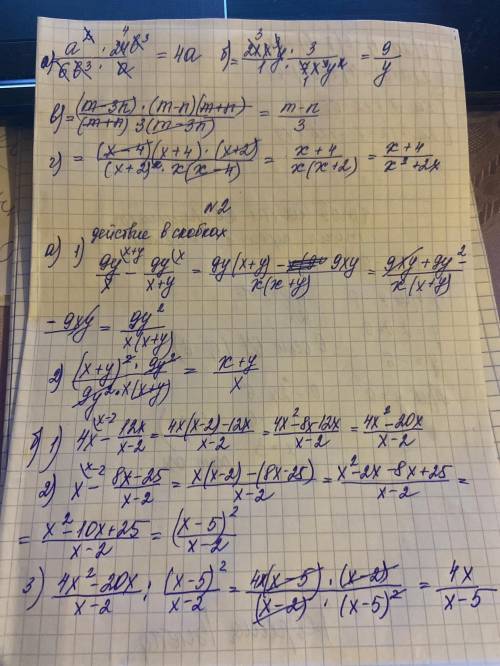 а) a² · 24b³ / 6b³ · a = 4a б) = 21x⁵y / 1 · 3 / 7x⁵y² = 9/y
в) = (m-3n) · (m-n)(m+n) / (m+n) 3(m-3n) = m-n / 3
г) = (x-4)(x+4) · (x+2) / (x+2)² · x(x-4) = x+4 / x(x+2) = x+4 / x²+2x
№2
а) 1) действие в скобках
9y/x - 9y/x+y = 9y(x+y) - 9xy / x(x+y) = 9xy + 9y² -
- 9xy / x(x+y) = 9y² / x(x+y)
2) (x+y)² · 9y² / 9y² · x(x+y) = x+y / x
б) 1) 4x - 12x / x-2 = 4x(x-2)-12x / x-2 = 4x²-8x-12x / x-2 = 4x²-20x / x-2
2) x - 8x-25 / x-2 = x(x-2)-(8x-25) / x-2 = x²-2x-8x+25 / x-2 =
= x²-10x+25 / x-2 = (x-5)² / x-2
3) 4x²-20x / x-2 : (x-5)² / x-2 = 4x(x-5) · (x-2) / (x-2) · (x-5)² = 4x / x-5